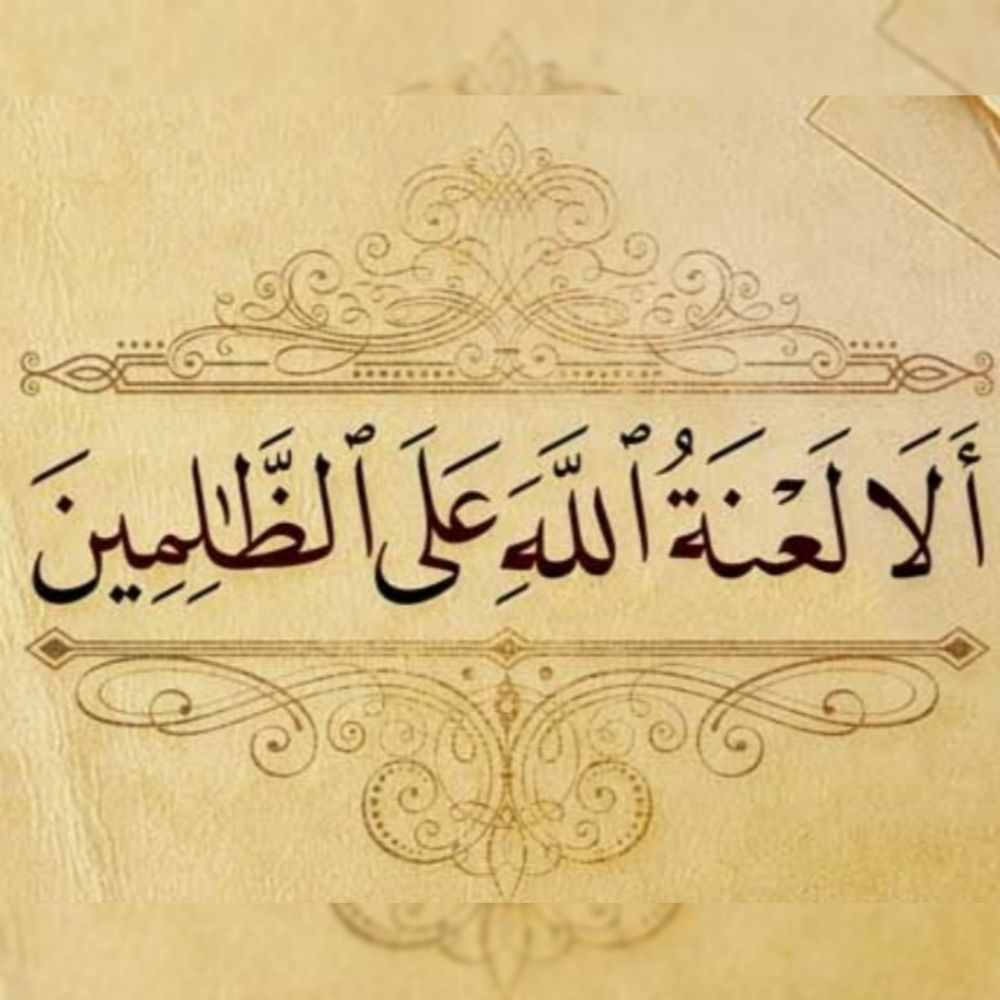 أَلَا لَعْنَةُ ٱللَّهِ عَلَى ٱلظَّٰلِمِينَ